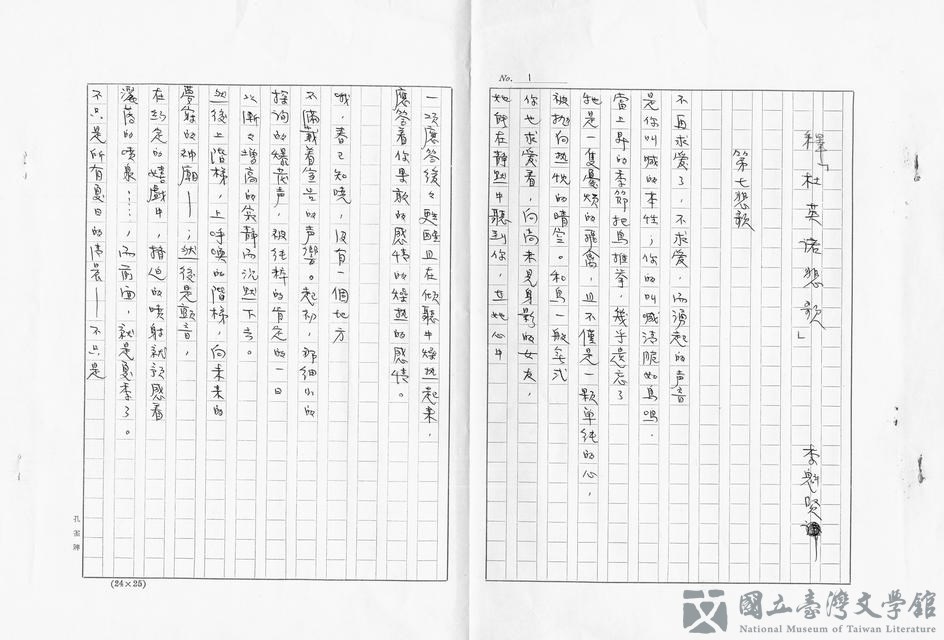 No. 1
釋「杜英諾悲歌」 李魁賢
第七悲歌
不再求愛了，不求愛，而湧起的声音
是你叫喊的本性；你的叫喊清脆如鳥鳴．
當上昇的季節把鳥推拳，幾乎遺忘了
牠是一隻憂煩的飛禽，且不僅是一顆单纯的心，
被抛向热悦的晴空。和鳥一般方式
你也求愛着，向尚未見身影的女友，
她所在静默中聽到你，在她心中
一項應答後々甦醒且在傾聽中燥热起来，
應答着你果敢的感情的燥热的感情。
哦，春已知曉，沒有一個地方
不滿載着宣告的声響。起初，那细小的
探詢的爆發声，被纯粹的肯定的一日
以漸々增高的寂静而沉默下去。
然後上階梯，上呼喚的階梯，向未来的
夢幻的神廟——；然後是顫音，
在約定的嬉戲中，擠迫的喷射就預感着
灑落的喷泉……，而前面，就是夏季了。
不只是所有夏日的清晨——不只是
孔雀牌
(24×25)
國立臺灣文學館
National Museum of Taiwan Literature